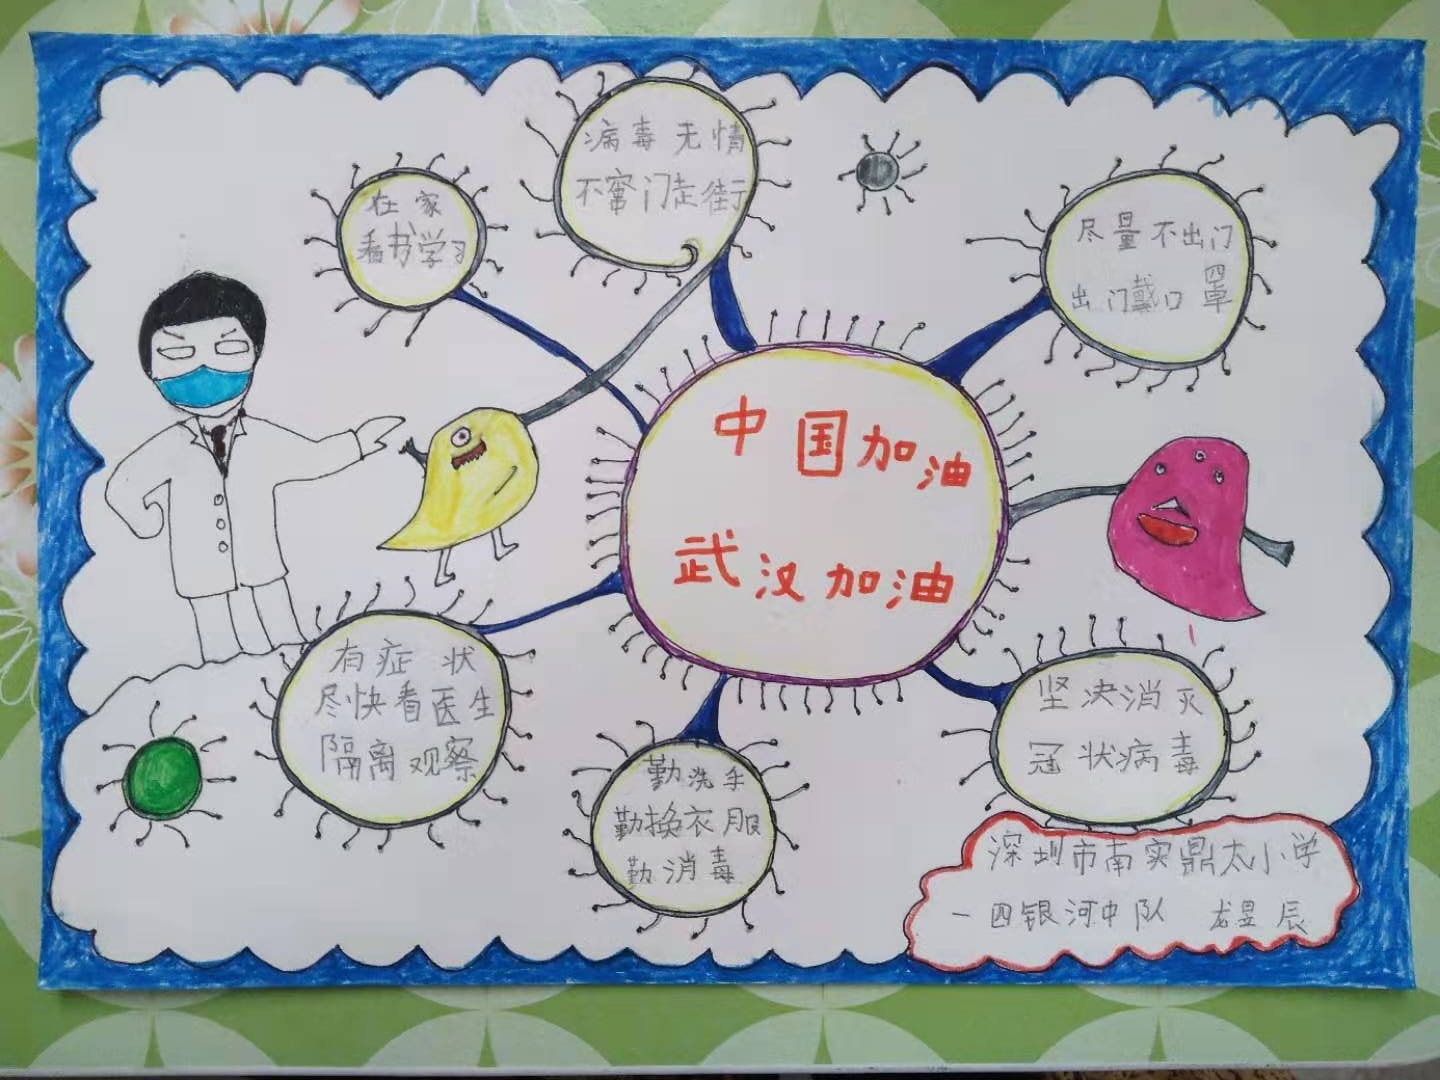 病毒无情
不窜门走街
在家
看书学习
尽量不出门
出门戴口罩
中国加油
武汉加油
有症状
尽快看医生
隔离观察
勤洗手
勤换衣服
勤消毒
坚决消灭
冠状病毒
深圳市南实鼎太小学
一四银河中队 龙昱辰